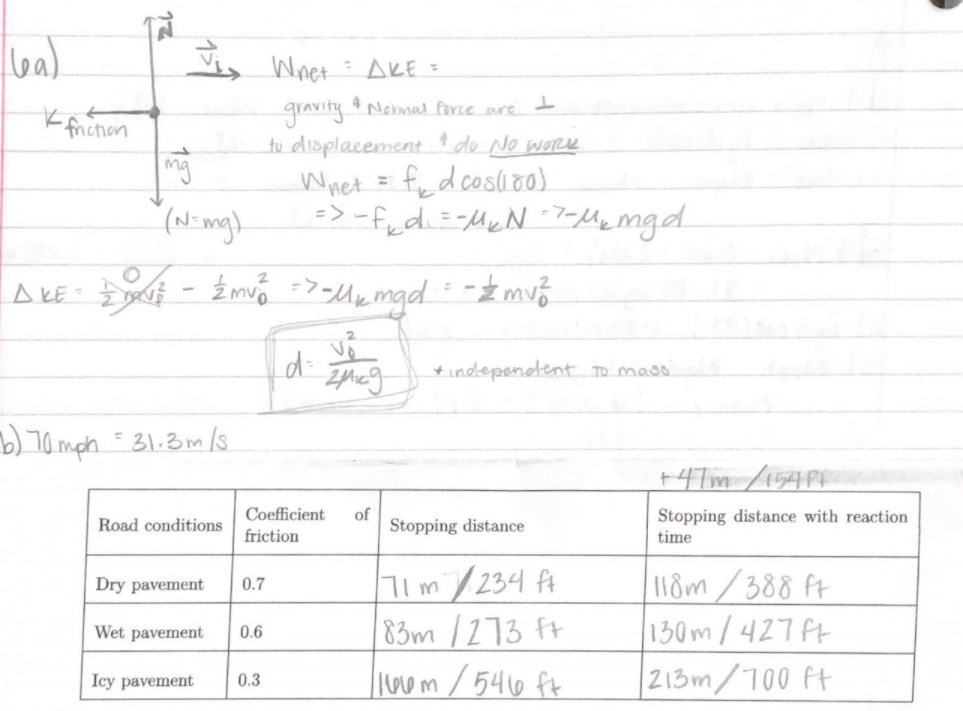 6a)
N
vᵢ
Wnet = ΔKE =
gravity & Normal force are ⊥
K friction
to displacement & do NO WORK
mg
Wnet = fₖ d cos(180)
(N=mg)
=> -fₖ d = -μₖN => -μₖ mgd
ΔKE = ½ mv_f² 0 - ½ mv₀² => -μₖ mgd = -½ mv₀²
d = v₀² / 2μₖg
* independent to mass
b) 70 mph = 31.3 m/s
+ 47m / 154 ft
Road conditions Coefficient of friction Stopping distance Stopping distance with reaction time
Dry pavement 0.7 71 m / 234 ft 118m / 388 ft
Wet pavement 0.6 83m / 273 ft 130m / 427 ft
Icy pavement 0.3 166m / 546 ft 213m / 700 ft